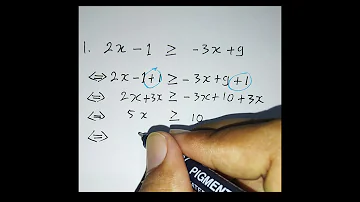 1. 2x - 1 ≥ -3x+9
⇔ 2x - 1 + 1 ≥ -3x + 9 + 1
⇔ 2x+3x ≥ -3x + 10 + 3x
⇔ 5x ≥ 10
⇔
PIGMENT